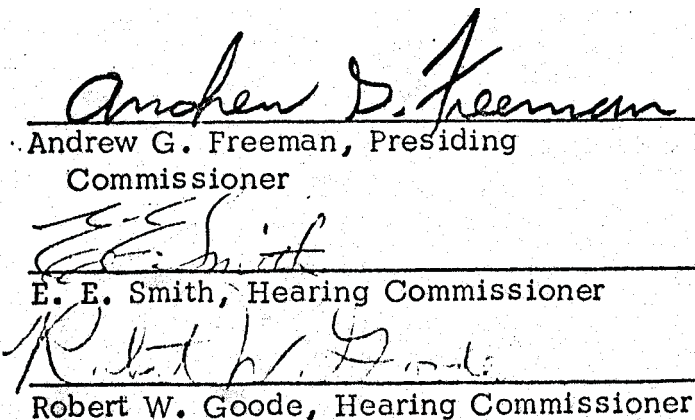 Andrew G. Freeman
Andrew G. Freeman, Presiding
Commissioner
E. E. Smith
E. E. Smith, Hearing Commissioner
Robert W. Goode
Robert W. Goode, Hearing Commissioner